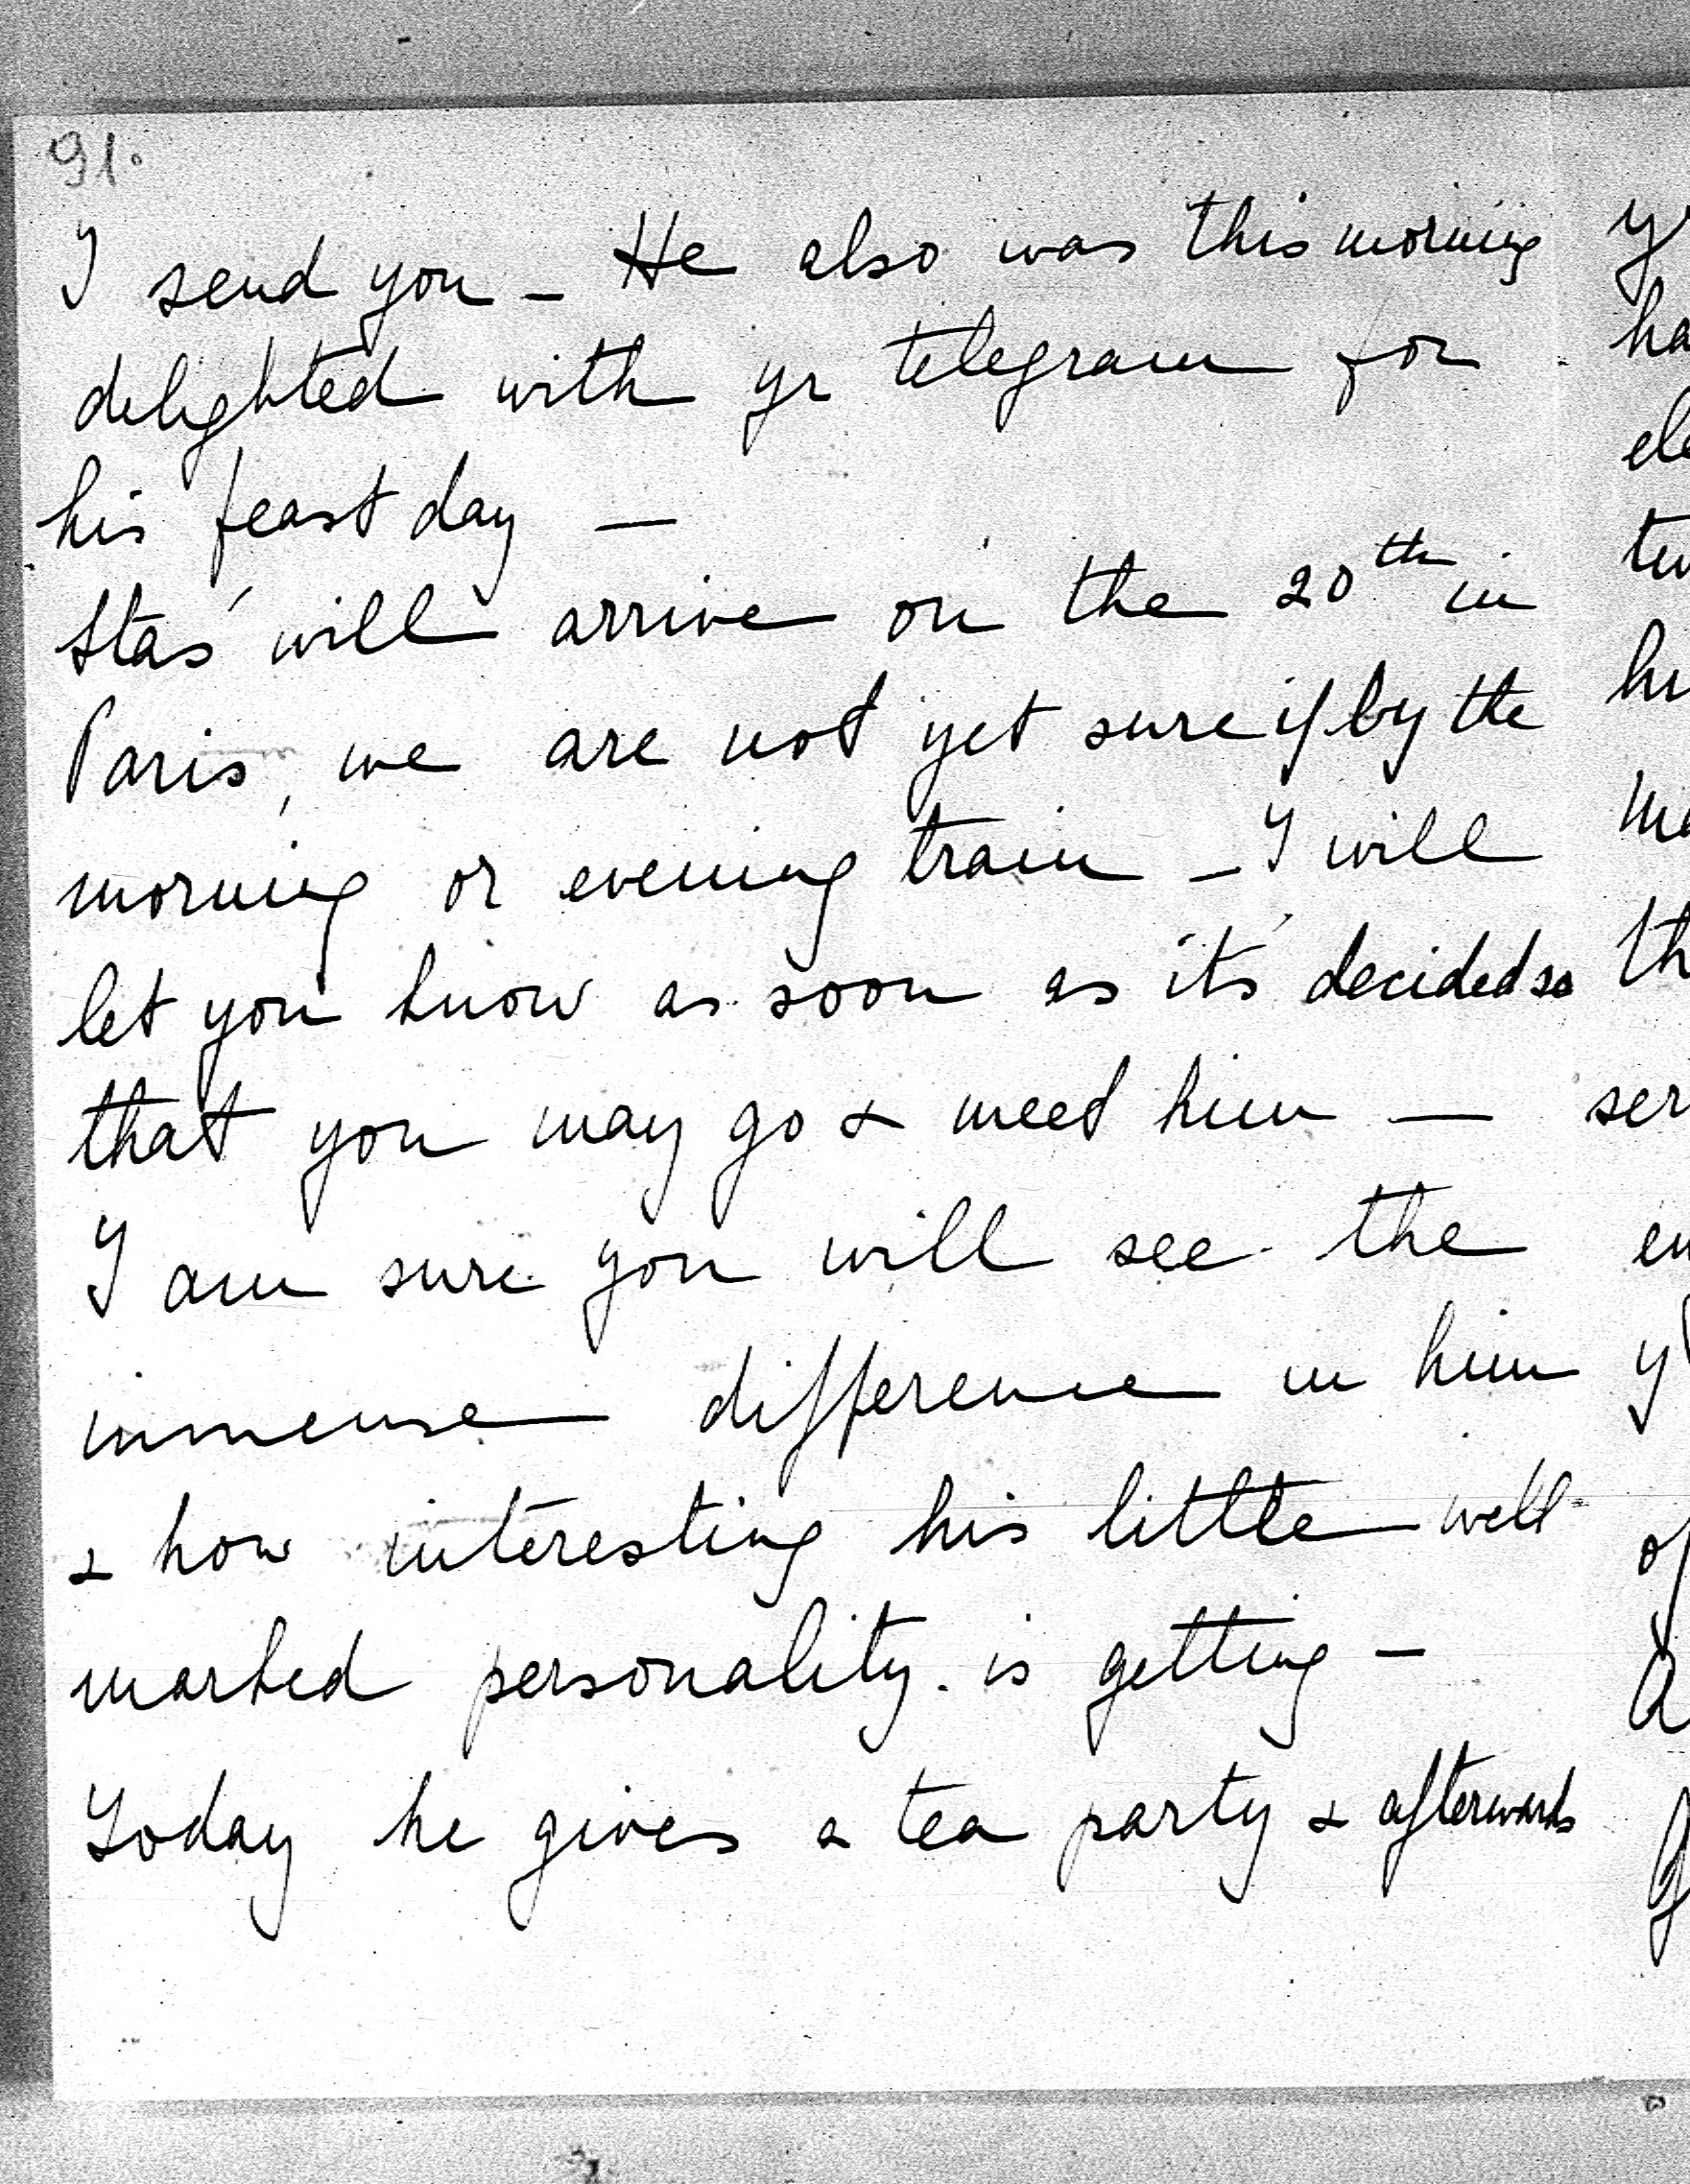 91.
I send you – He also was this morning
delighted with yr telegram for
his feast day –
Staś will arrive on the 20th in
Paris, we are not yet sure if by the
morning or evening train – I will
let you know as soon as it's decided so
that you may go & meet him –
I am sure you will see the
immense difference in him
& how interesting his little well
marked personality is getting –
Today he gives a tea party & afterwards